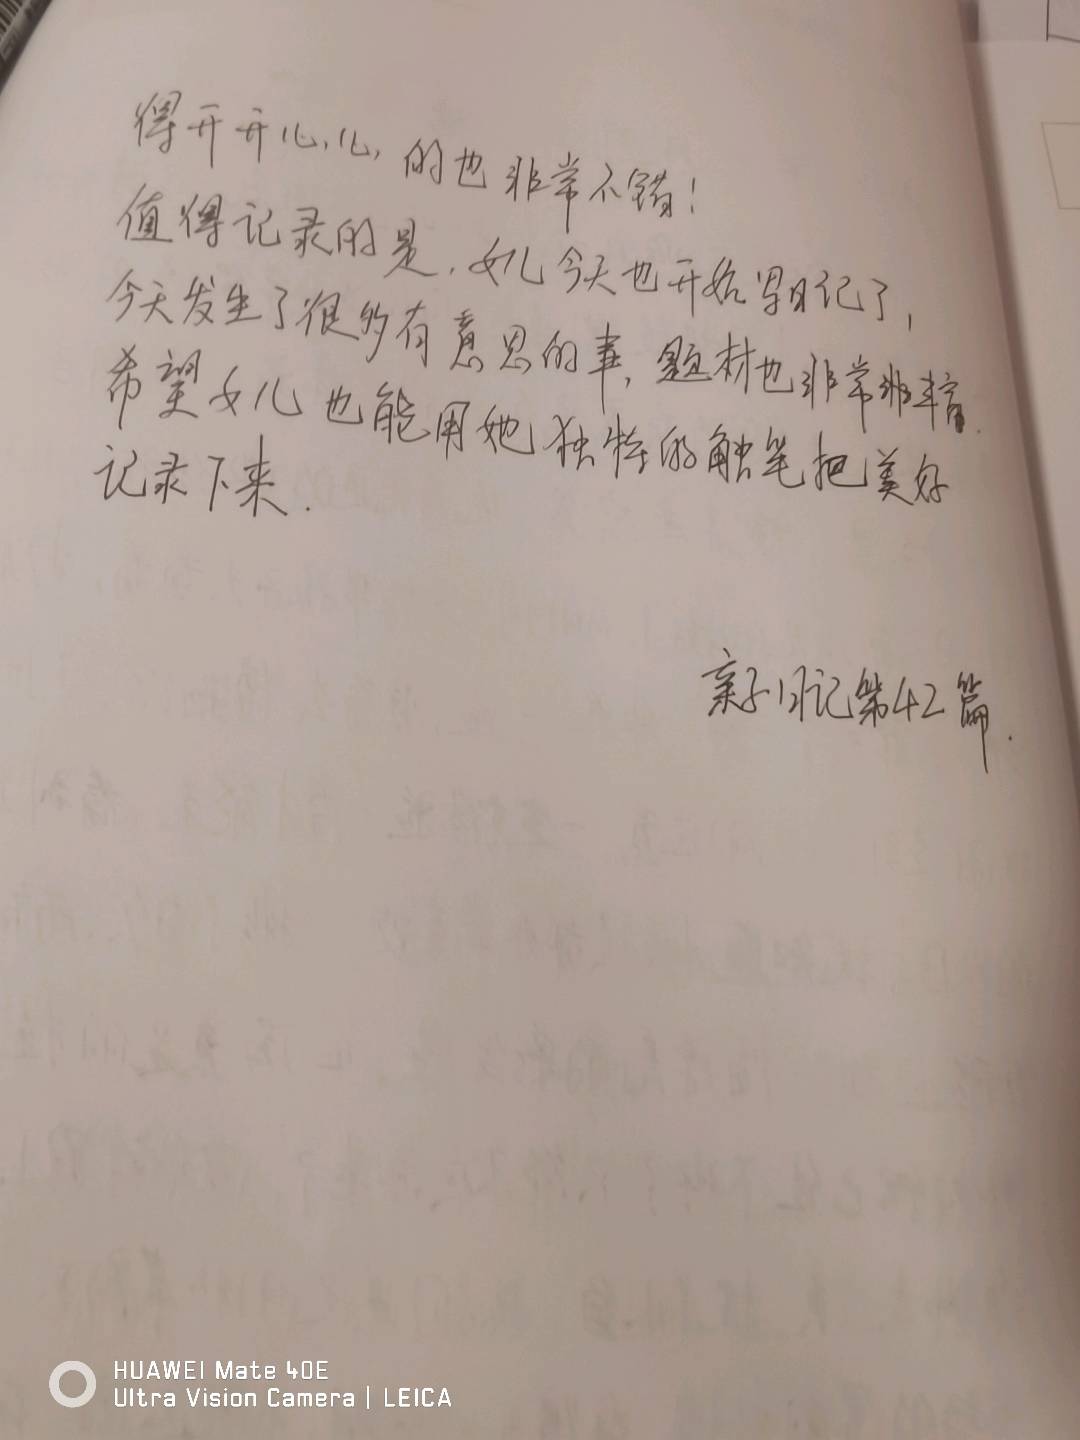 得开开心心的也非常不错！
值得记录的是，女儿今天也开始写日记了，
今天发生了很多有意思的事，题材也非常非丰富.
希望女儿也能用她独特的触笔把美好
记录下来.
亲子日记第42篇.
HUAWEI Mate 40E
Ultra Vision Camera | LEICA